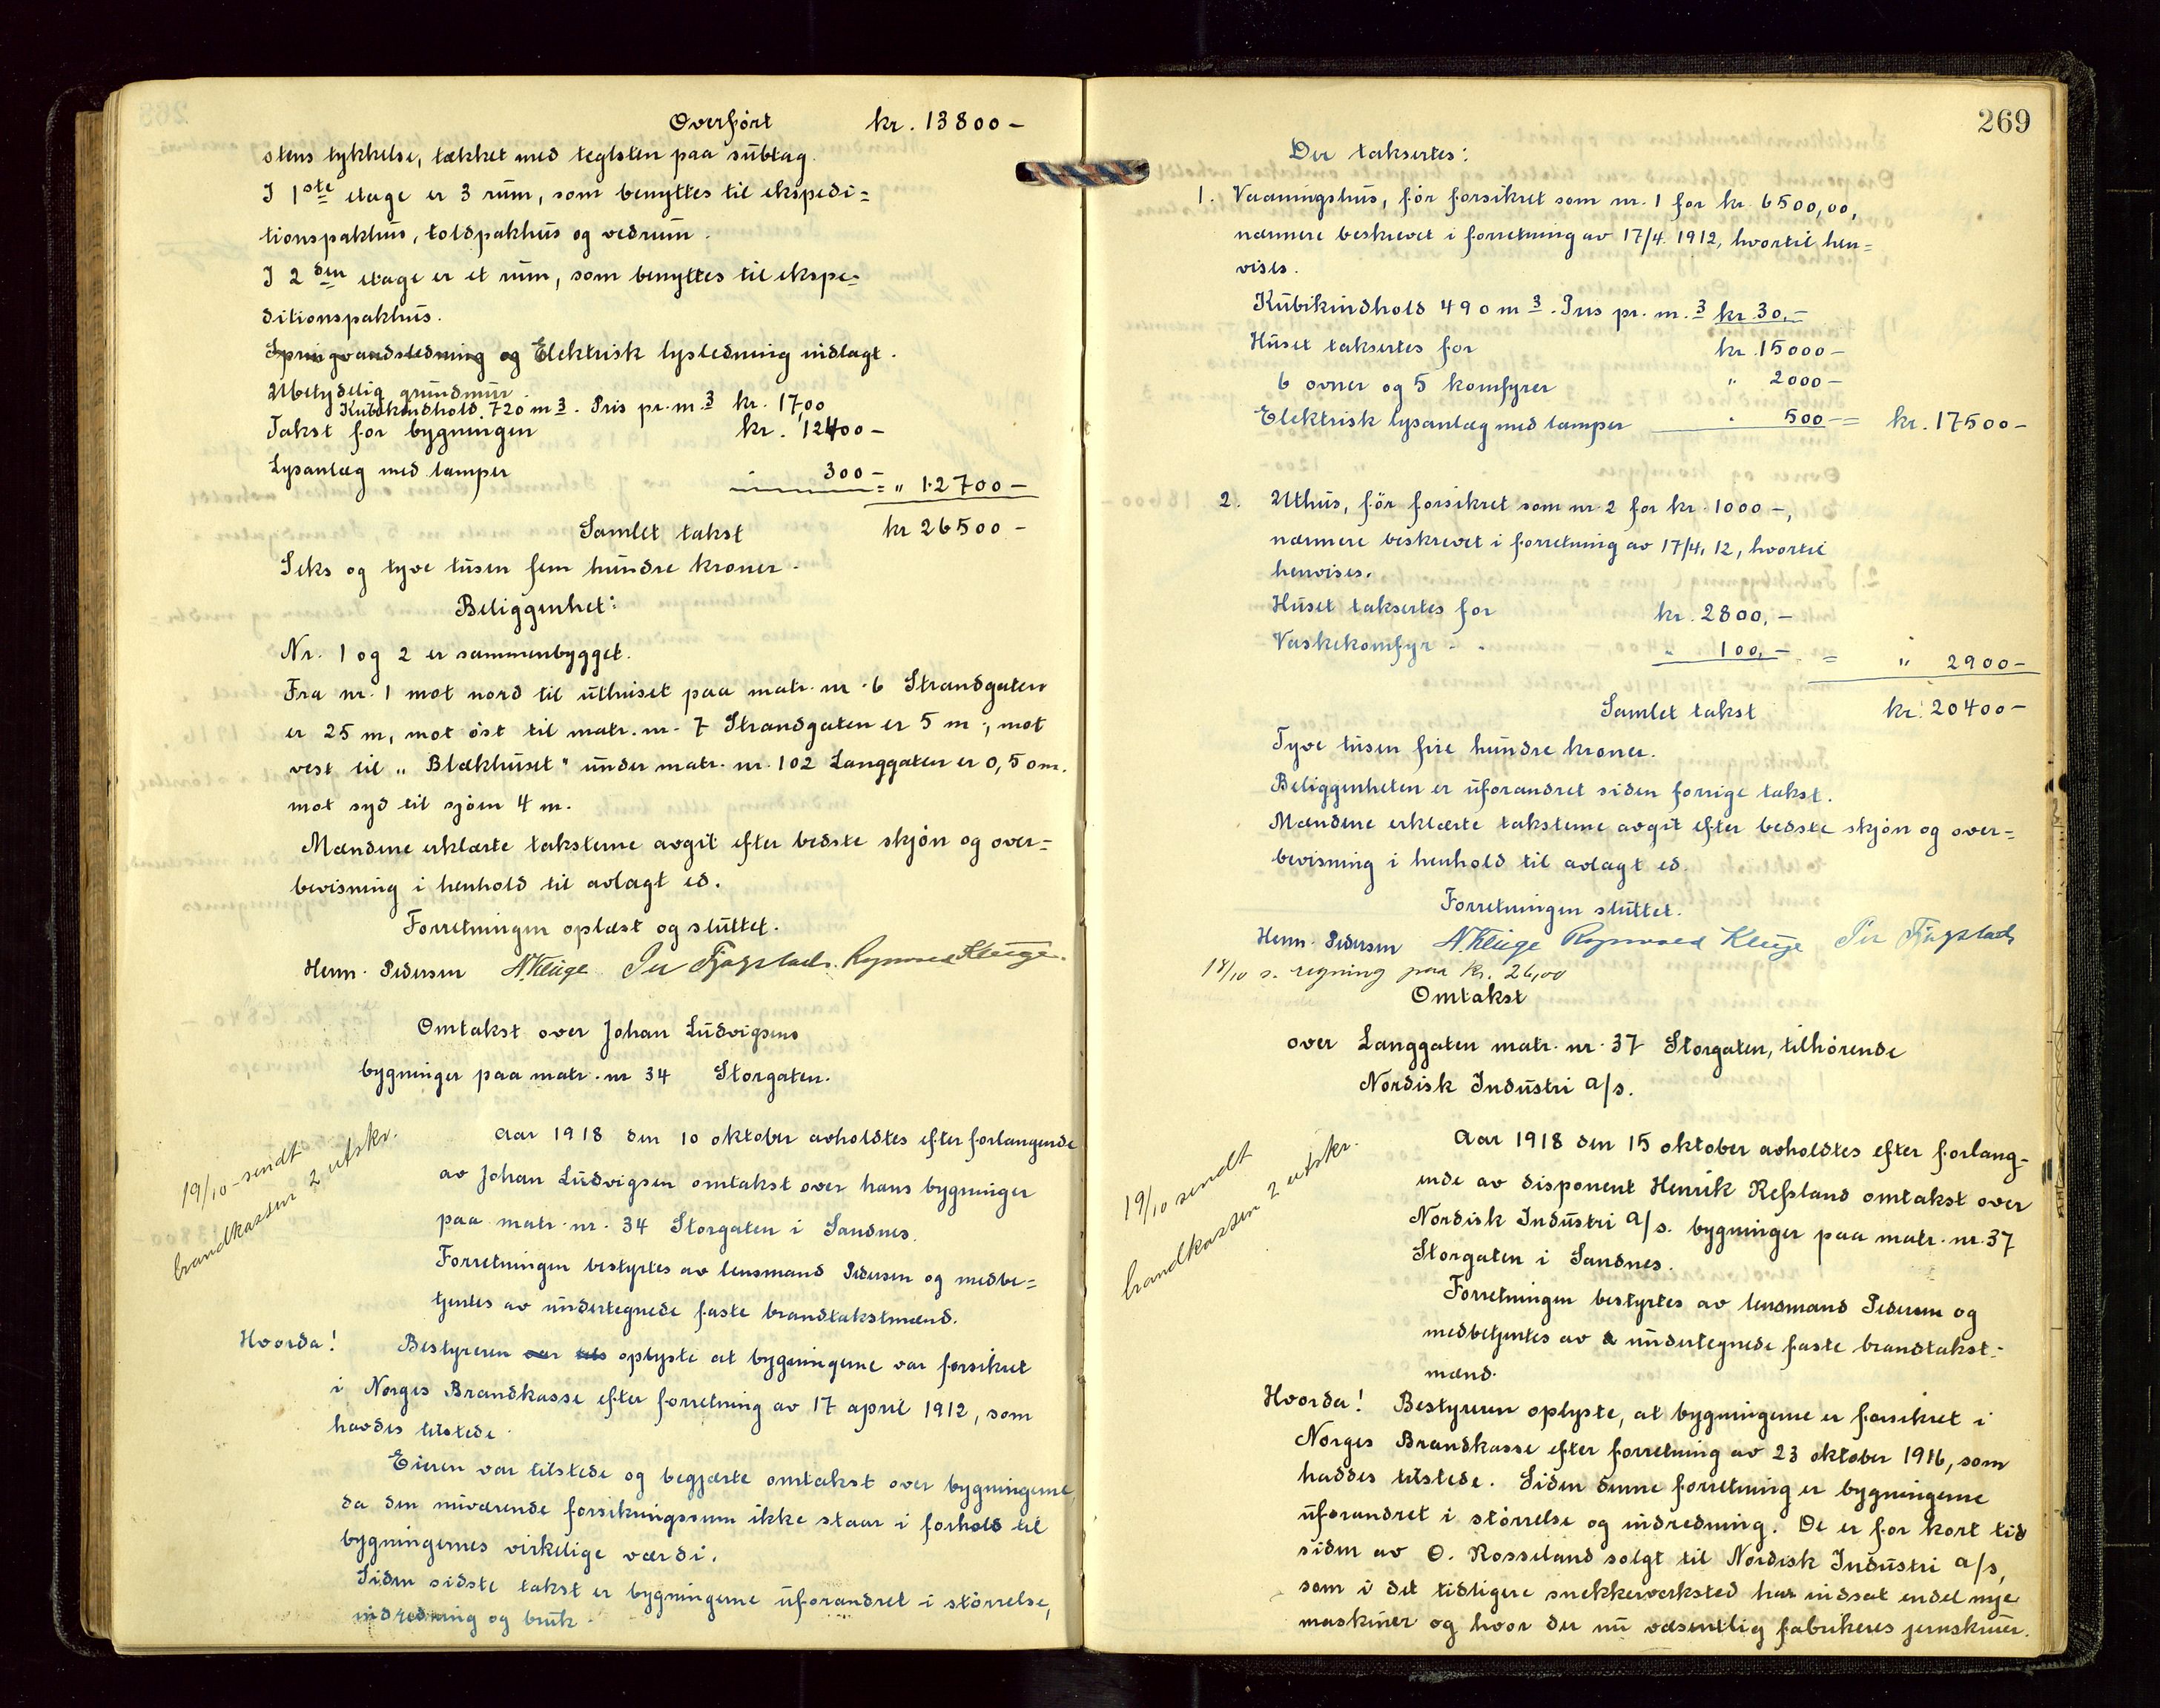 Overført kr. 13800-
stens tykkelse, tækket med teglsten paa subtag.
I 1ste etage er 3 rum, som benyttes til ekspedi=
tionspakhus, toldpakhus og vedrum.
I 2den etage er et rum, som benyttes til ekspe=
ditionspakhus.
Springvandsledning og Elektrisk lysledning indlagt.
Ubetydelig grundmur.
Kubikindhold 720 m3. Pris pr. m.3 kr. 17,00
Takst for bygningen kr. 12400-
Lysanlæg med lamper 300- = " 12700-
Samlet takst kr 26500-
Seks og tyve tusen fem hundre kroner.
Beliggenhet:
Nr. 1 og 2 er sammenbygget.
Fra nr. 1 mot nord til uthuset paa matr. nr. 6 Strandgaten
er 25 m, mot øst til matr. nr. 7 Strandgaten er 5 m., mot
vest til „Blækhuset" under matr. nr. 102 Langgaten er 0,50m.
mot syd til sjøen 4 m.
Mændene erklærte taksterne avgit efter bedste skjøn og over=
bevisning i henhold til avlagt ed.
Forretningen oplæst og sluttet.
Herm. Pedersen N Kluge Per Fjogstad. Rognvald Kluge.
Omtakst over Johan Ludvigsens
bygninger paa matr. nr 34 Storgaten.
19/10 - sendt
brandkassen 2 utskr.
Aar 1918 den 10 oktober avholdtes efter forlangende
av Johan Ludvigsen omtakst over hans bygninger
paa matr. nr. 34 Storgaten i Sandnes.
Forretningen bestyrtes av lensmand Pedersen og medbe=
tjentes av undertegnede faste brandtakstmænd.
Hvorda! Bestyreren oplyste at bygningerne var forsikret
i Norges Brandkasse efter forretning av 17 april 1912, som
havdes tilstede.
Eieren var tilstede og begjærte omtakst over bygningerne,
da den nuværende forsikringssum ikke staar i forhold til
bygningernes virkelige værdi.
Siden sidste takst er bygningerne uforandret i størrelse,
indredning og bruk.
269
Der taksertes:
1. Vaaningshus, før forsikret som nr. 1 for kr. 6500,00,
nærmere beskrevet i forretning av 17/4. 1912, hvortil hen=
vises.
Kubikindhold 490 m3. Pris pr. m.3 kr. 30,-
Huset taksertes for kr. 15000-
6 ovner og 5 komfyrer " 2000-
Elektrisk lysanlæg med lamper " 500- = kr. 17500-
2. Uthus, før forsikret som nr. 2 for kr. 1000-,
nærmere beskrevet i forretning av 17/4. 12, hvortil
henvises.
Huset taksertes for kr. 2800,-
Vaskekomfyr " 100,- = " 2900-
Samlet takst kr. 20400-
Tyve tusen fire hundre kroner.
Beliggenheten er uforandret siden forrige takst.
Mændene erklærte taksterne avgit efter bedste skjøn og over=
bevisning i henhold til avlagt ed.
Forretningen sluttet.
Herm. Pedersen N Kluge Rognvald Kluge Per Fjogstad
18/10 s. regning paa kr. 26,00
Omtakst
over Langgaten matr. nr. 37 Storgaten, tilhørende
Nordisk Industri a/s.
19/10 sendt
brandkassen 2 utskr.
Aar 1918 den 15 oktober avholdtes efter forlang-
ende av disponent Henrik Refsland omtakst over
Nordisk Industri a/s. bygninger paa matr. nr. 37
Storgaten i Sandnes.
Forretningen bestyrtes av lensmand Pedersen og
medbetjentes av undertegnede faste brandtakst-
mænd.
Hvorda! Bestyreren oplyste, at bygningerne er forsikret i
Norges Brandkasse efter forretning av 23 oktober 1916, som
haddes tilstede. Siden denne forretning er bygningerne
uforandret i størrelse og indredning. De er for kort tid
siden av O. Rosseland solgt til Nordisk Industri a/s,
som i det tidligere snekkerverksted har indsat endel nye
maskiner og hvor der nu væsentlig fabrikeres jernskruer.